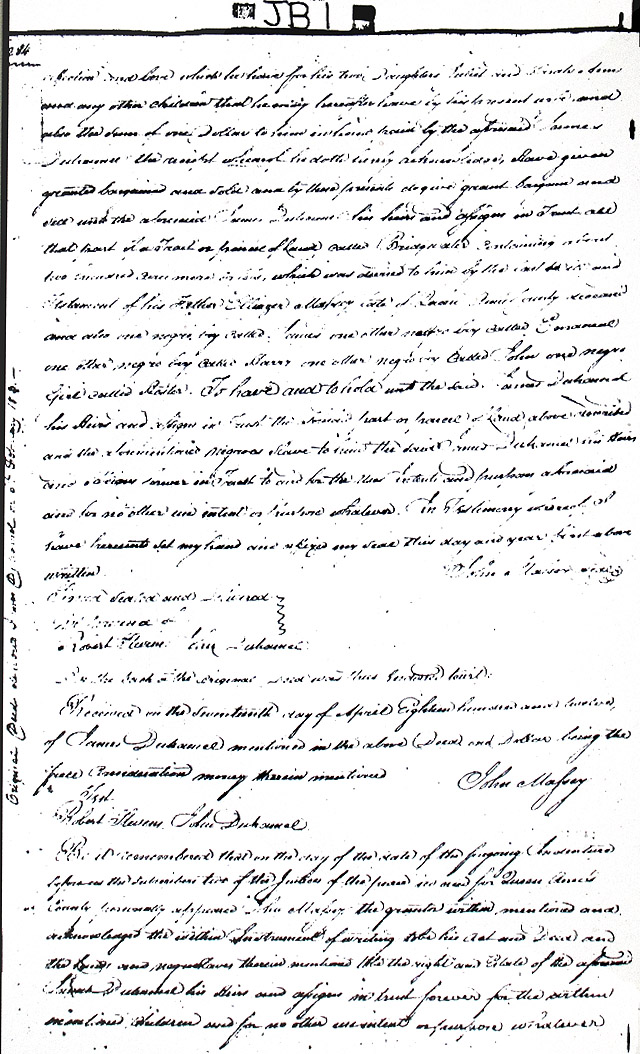 JB 1
284
affection and Love which he have for his two Daughters Juliet and Ann
and any other children that he may hereafter have by his present wife and
also the sum of one Dollar to him in hand paid by the aforesaid James
Duhamel the receipt whereof he doth hereby acknowledge, Have given
granted bargained and sold and by these presents do give grant bargain and
sell unto the aforesaid James Duhamel his heirs and assigns in Trust all
that part of a Tract or parcel of Land called Bridgwater Containing about
two hundred acres more or less, which was devised to him by the last will and
Testament of his Father Ebenezer Massey late of Queen Anns County deceased
and also one negro boy called James one other negro boy called Emanuel
one other negro boy called Harry one other negro boy called John one negro
Girl called Hester. To have and to hold unto the said James Duhamel
his Heirs and assigns in Trust the said part or parcel of Land above described
and the abovementioned negroes Slave to him the said James Duhamel his Heirs
and assigns forever in Trust to and for the Uses Intents and purposes aforesaid
and for no other use intent or purpose whatever. In Testimony whereof I
have hereunto set my hand and affixed my seal this day and year first above
written John Massey seal
Signed Sealed and Delivered
in presence of
Robert Stevens John Duhamel
On the back of the Original Deed was thus Endorsed to wit.
Received on the Seventeenth day of April Eighteen hundred and twelve
of James Duhamel mentioned in the above Deed one Dollar being the
full Consideration money therein mentioned John Massey
Test.
Robert Stevens John Duhamel
Be it remembered that on the day of the date of the foregoing Indenture
before us the subscribers two of the Justices of the peace in and for Queen Ann's
County personally appeared John Massey the grantor within mentioned and
acknowledged the within Instrument of writing to be his Act and Deed and
the Lands and negro slaves therein mentioned to be the right and Estate of the aforesaid
James Duhamel his Heirs and assigns in trust forever for the within
mentioned children and for no other use intent or purpose whatever
Original Deed